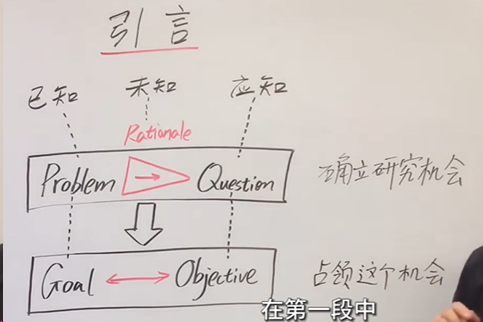 引言
已知 未知 应知
Rationale
Problem Question 确立研究机会
Goal Objective 占领这个机会
在第一段中